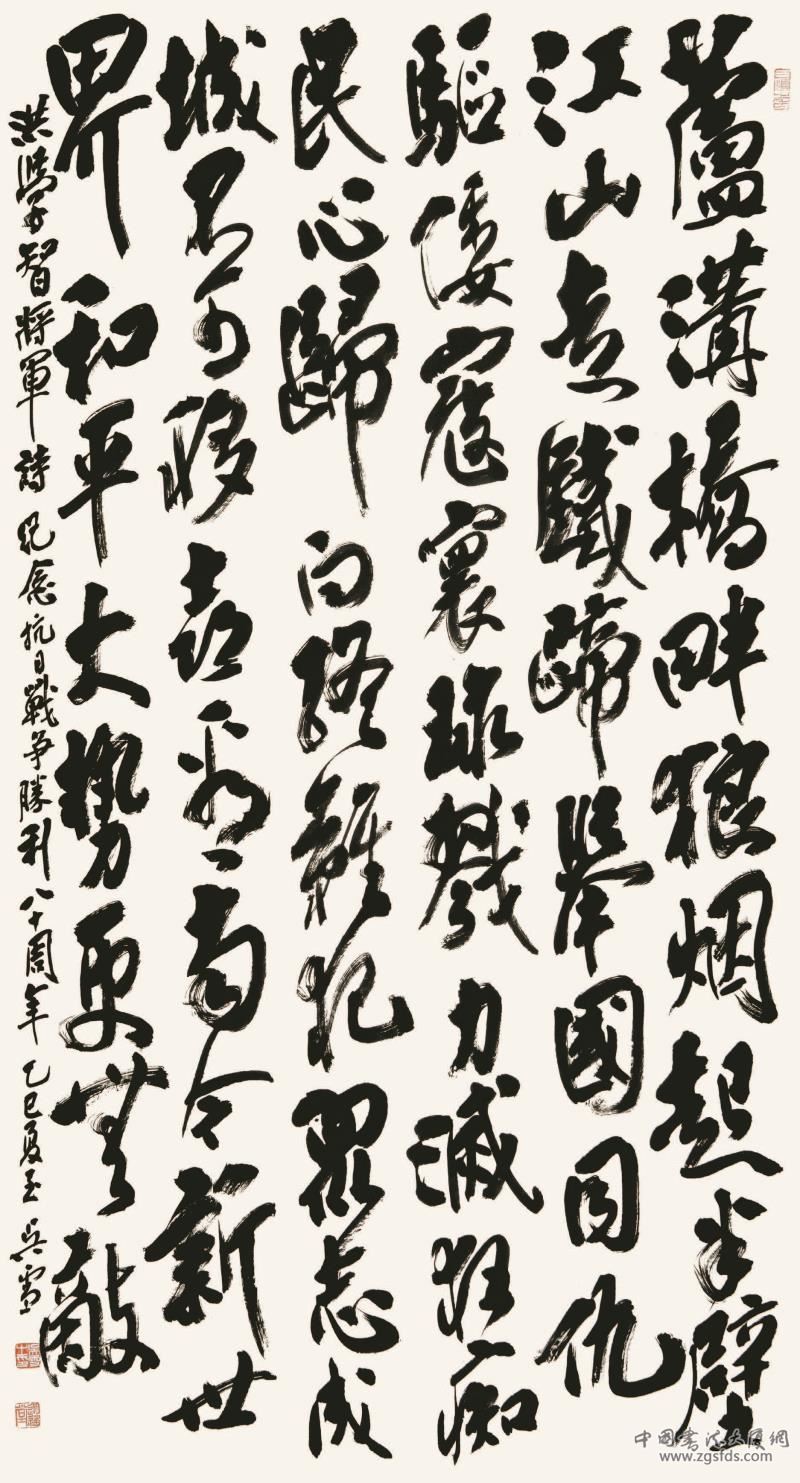 蘆溝橋畔狼烟起半壁
江山遭鐵蹄舉國同仇
驅倭寇寰球戮力滅狂痴
民心歸向終難犯眾志成
城不可移喜看而今新世
界和平大勢更無敵
洪學智將軍詩 紀念抗日戰争勝利八十周年 乙巳夏至 吳雪
中國書法大廈網
www.zgsfds.com